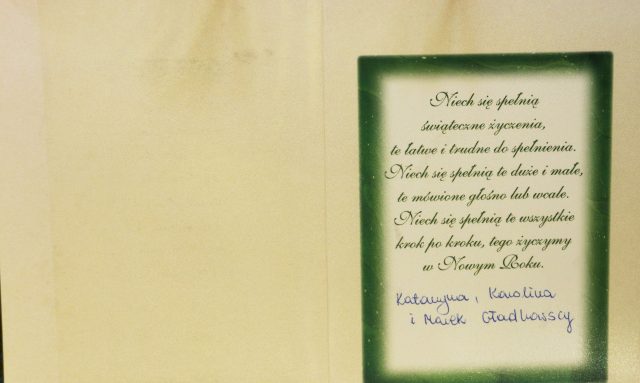 Niech się spełnią
świąteczne życzenia,
te łatwe i trudne do spełnienia.
Niech się spełnią te duże i małe,
te mówione głośno lub wcale.
Niech się spełnią te wszystkie
krok po kroku, tego życzymy
w Nowym Roku.
Katarzyna, Karolina
i Marek